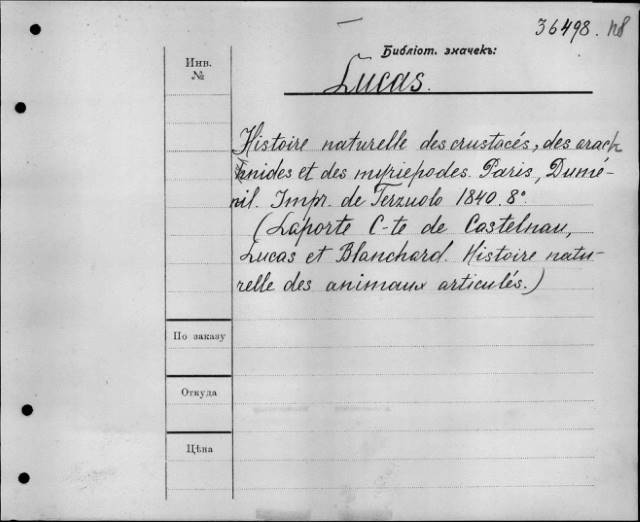 36498. N8
Библіот. значекъ:
Инв.
№
Lucas.
Histoire naturelle des crustacés, des arach
nides et des myriepodes. Paris, Dumé-
nil. Impr. de Terzuolo 1840. 8°
(Laporte C-te de Castelnau,
Lucas et Blanchard. Histoire natu-
relle des animaux articulés.)
По заказу
Откуда
Цѣна